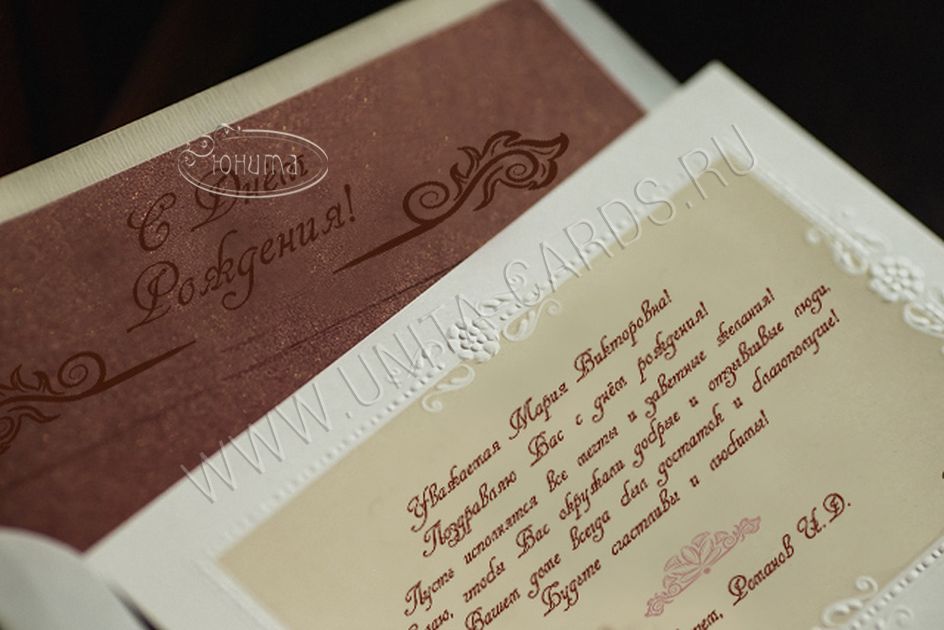 юнита
С Днем
Рождения!
WWW.UNITA-CARDS.RU
Уважаемая Мария Викторовна!
Поздравляю Вас с днём рождения!
Пусть исполнятся все мечты и заветные желания!
чтобы Вас окружали добрые и отзывчивые люди,
Вашем доме всегда был достаток и благополучие!
Будьте счастливы и любимы!
Романов И.Д.